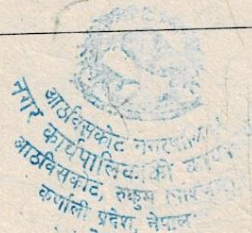 आठबिसकोट नगरपालिका
नगर कार्यपालिकाको कार्यालय
आठबिसकोट, रुकुम (पश्चिम)
कर्णाली प्रदेश, नेपाल